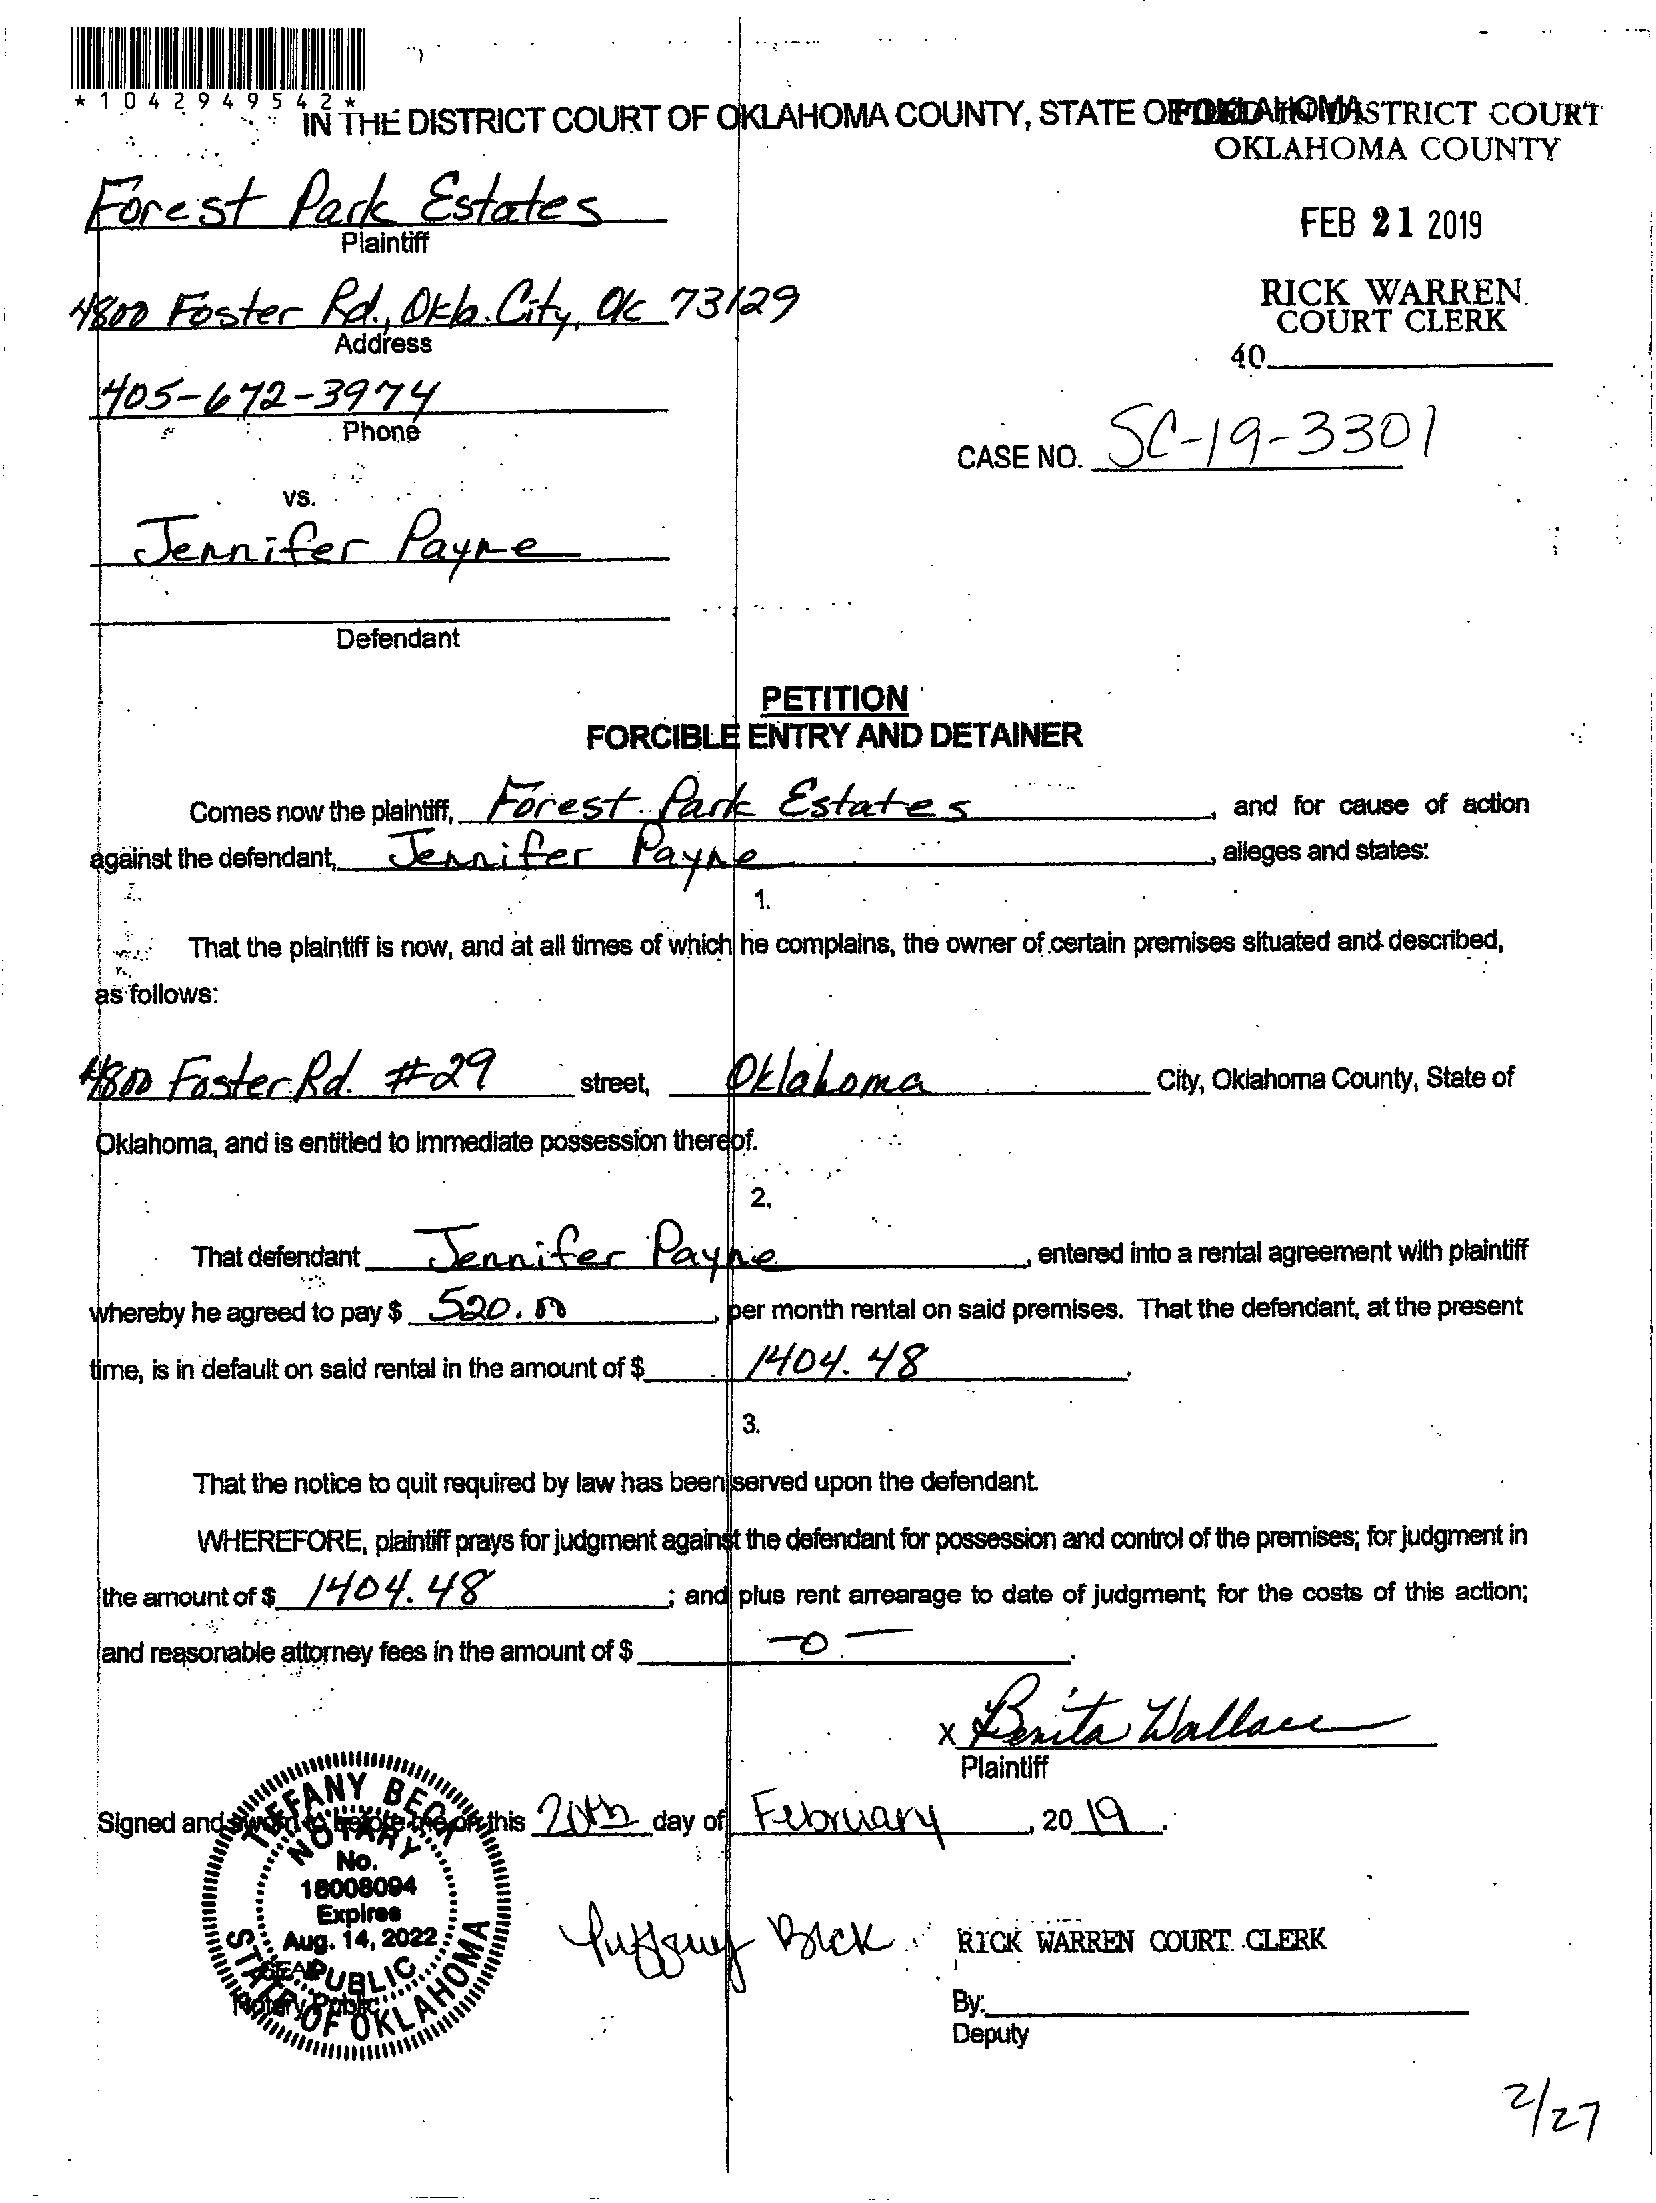 *1042949542*
IN THE DISTRICT COURT OF OKLAHOMA COUNTY, STATE OF OKLAHOMA
FILED IN DISTRICT COURT
OKLAHOMA COUNTY
Forest Park Estates
Plaintiff
FEB 21 2019
4800 Foster Rd., Okla. City, Ok 73129
Address
RICK WARREN
COURT CLERK
40
405-672-3974
Phone
CASE NO. SC-19-3301
vs.
Jennifer Payne
Defendant
PETITION
FORCIBLE ENTRY AND DETAINER
Comes now the plaintiff, Forest Park Estates, and for cause of action
against the defendant, Jennifer Payne, alleges and states:
1.
That the plaintiff is now, and at all times of which he complains, the owner of certain premises situated and described,
as follows:
4800 Foster Rd. #29 street, Oklahoma City, Oklahoma County, State of
Oklahoma, and is entitled to immediate possession thereof.
2.
That defendant Jennifer Payne, entered into a rental agreement with plaintiff
whereby he agreed to pay $ 520.00, per month rental on said premises. That the defendant, at the present
time, is in default on said rental in the amount of $ 1404.48.
3.
That the notice to quit required by law has been served upon the defendant.
WHEREFORE, plaintiff prays for judgment against the defendant for possession and control of the premises; for judgment in
the amount of $ 1404.48; and plus rent arrearage to date of judgment; for the costs of this action;
and reasonable attorney fees in the amount of $ -0-.
X Benita Wallace
Plaintiff
Signed and sworn to before me on this 20th day of February, 2019.
TIFFANY BECK
NOTARY
No.
18008094
Expires
Aug. 14, 2022
PUBLIC
STATE OF OKLAHOMA
SEAL
Notary Public
Tiffany Beck
RICK WARREN COURT CLERK
By:
Deputy
2/27